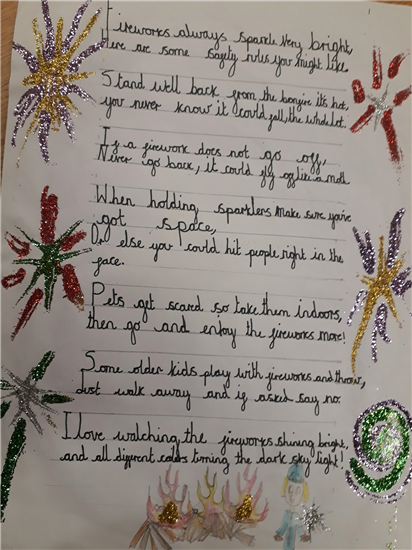 Fireworks always sparkle very bright,
Here are some safety rules you might like.
Stand well back from the bonfire it's hot,
you never know it could fall, the whole lot.
If a firework does not go off,
Never go back, it could fly off like a moth.
When holding sparklers make sure you've
got space,
Or else you could hit people right in the
face.
Pets get scared so take them indoors,
then go and enjoy the fireworks more!
Some older kids play with fireworks and throw,
Just walk away and if asked say no.
I love watching the fireworks shining bright,
and all different colors turning the dark sky light!